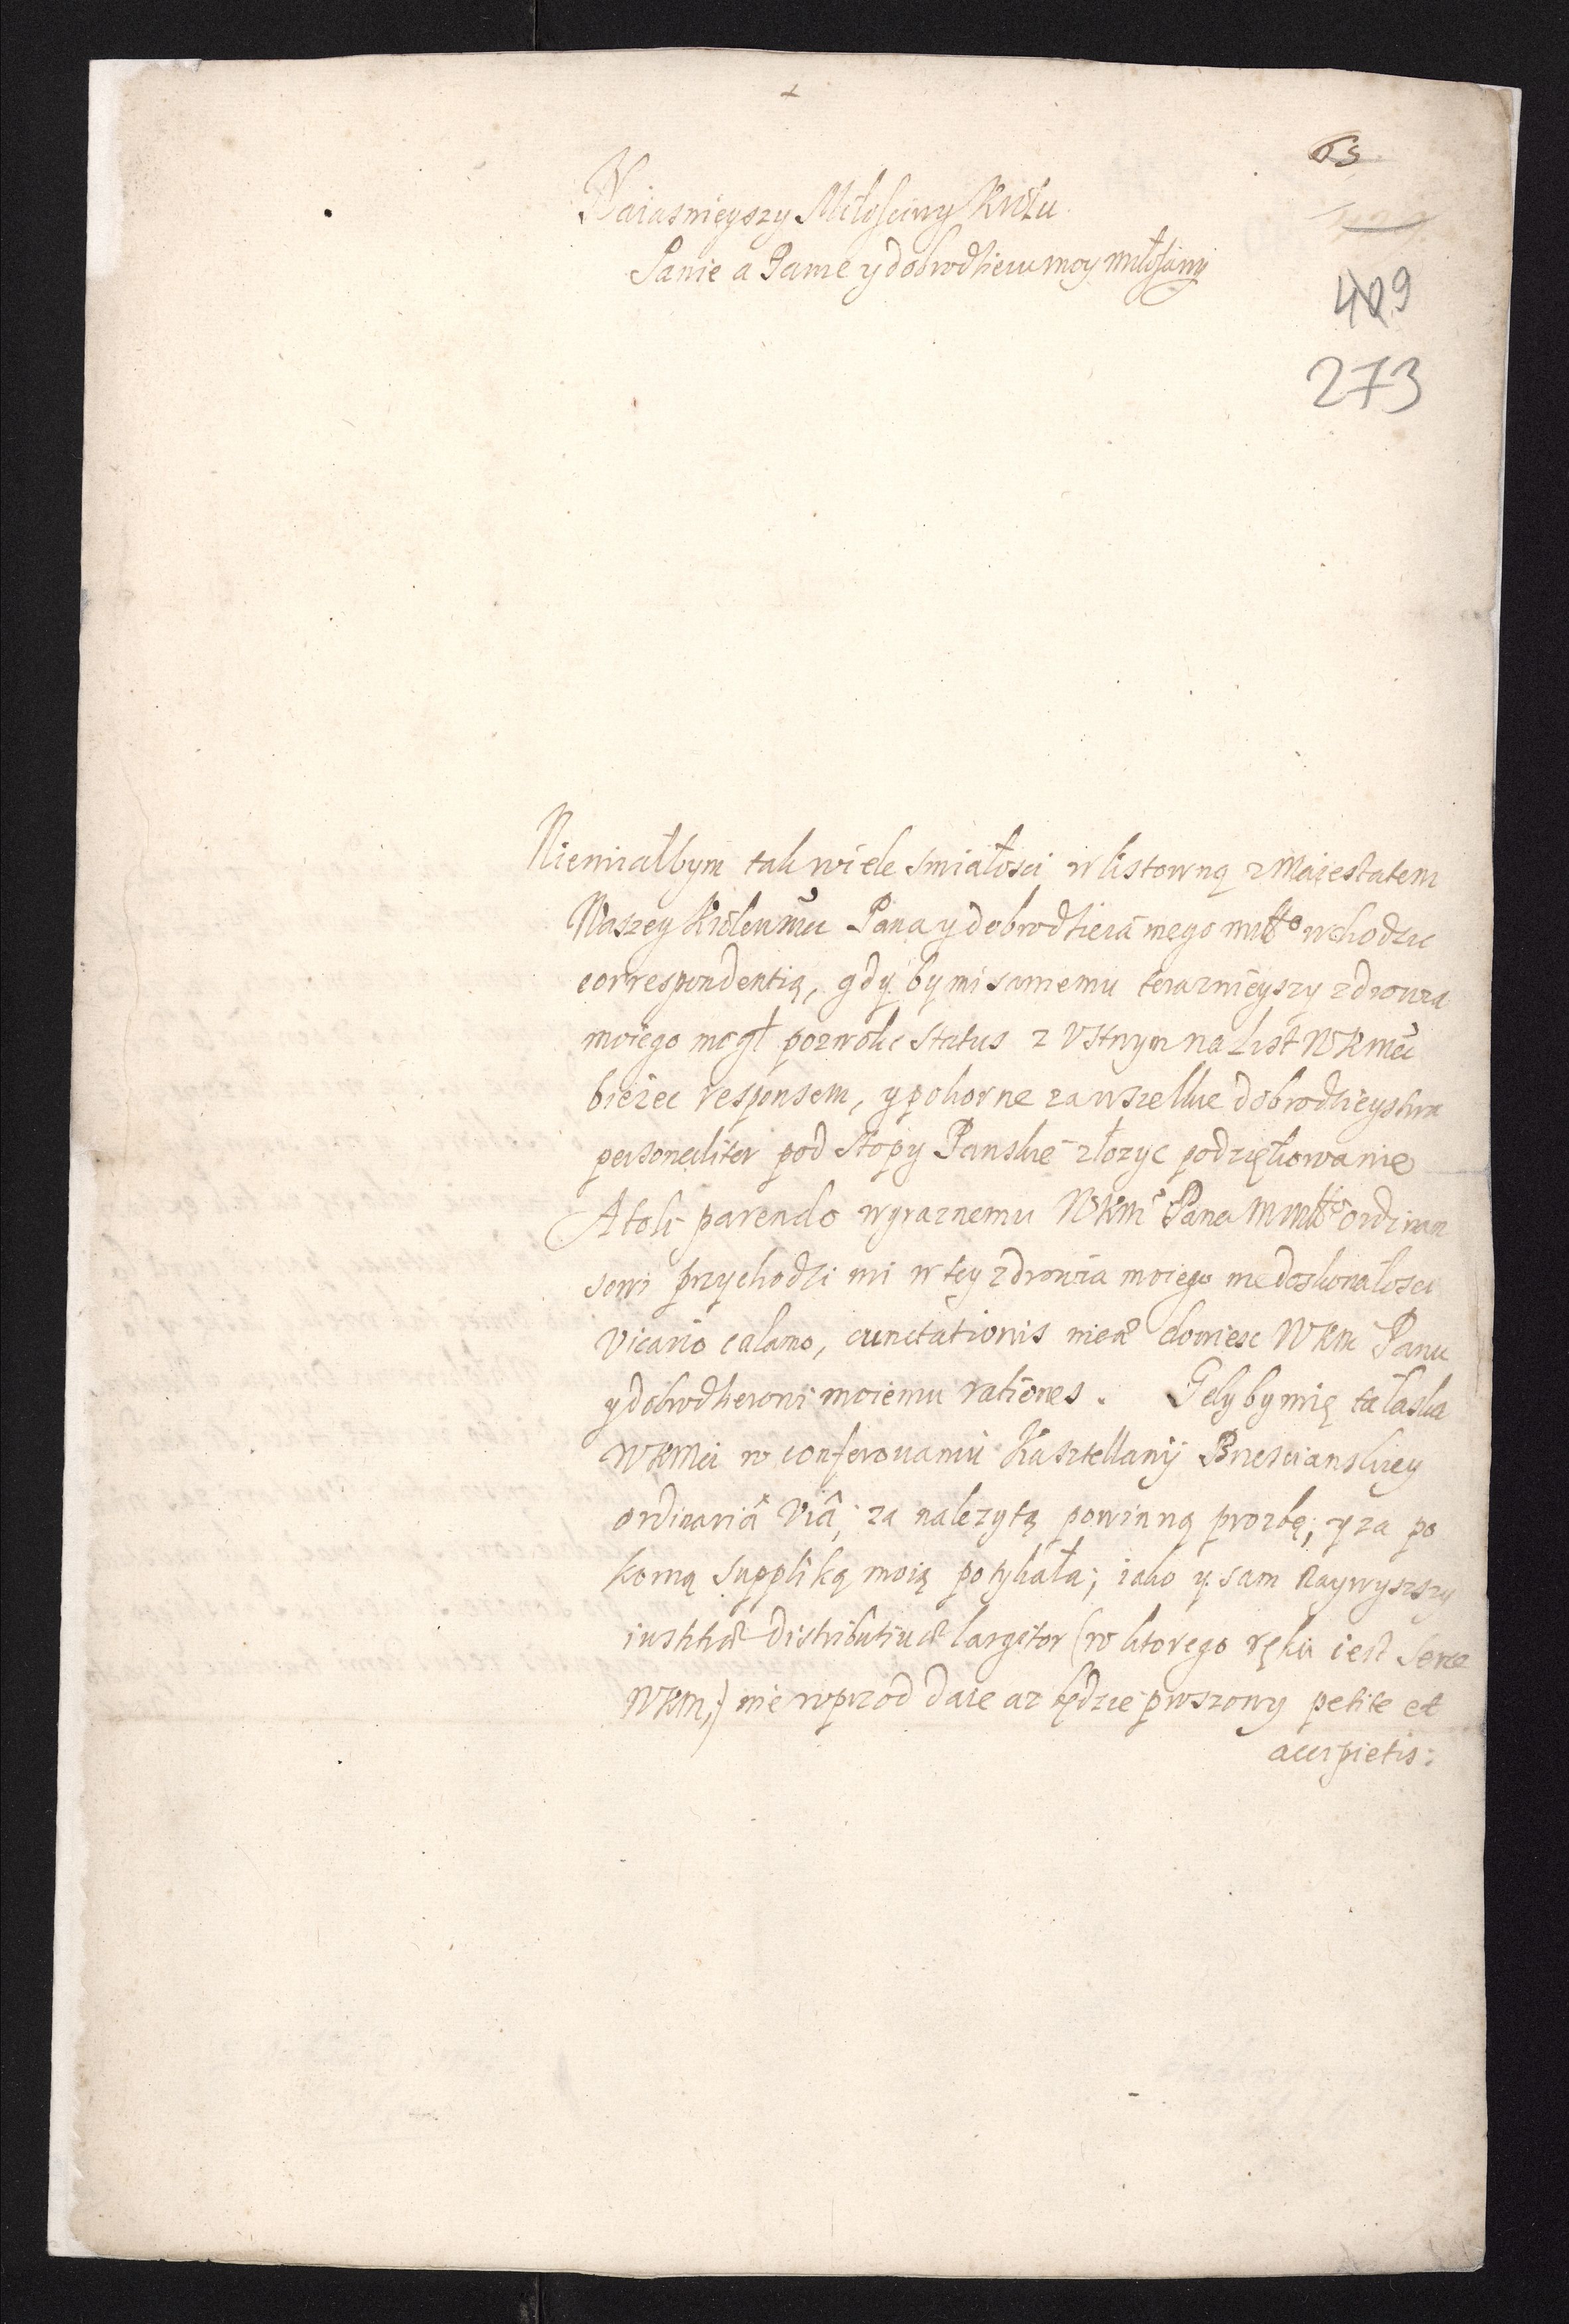 +
65
Naiasnieyszy Miłosciwy Krolu
Panie a Panie y dobrodzieiu moy miłosciwy
409
273
Niemiałbym tak wiele smiałosci w listowną z Maiestatem
Waszey Krolewmci Pana y dobrodzieia mego młłgo wchodzic
correspondentią, gdy by mi samemu teraznieyszy zdrowia
moiego mogł pozwolic status z Vstnym na List WKmci
bieżec responsem, y pokorne za wszelkie dobrodzieystwa
personaliter pod stopy Panskie złozyc podziękowanie
Atoli parendo wyraznemu WKmci Pana mmłłgo ordinan
sowi przychodzi mi w tey zdrowia moiego niedoskonałosci
vicario calamo, cunctationis meæ doniesc WKM Panu
y dobrodzieiowi moiemu rationes. Gdyby mię ta łaska
WKMci w conferowaniu Kasztellanij Brzescianskiey
ordinariâ Viâ, za nalezytą powinną prozbę, y za po
korną supplikę moię potykała; iako y sam naywyszszy
iustitiæ distributivæ largitor (w ktorego ręku iest Serce
WKM,) nie wprzod daie az będzie proszony petite et
accipietis: